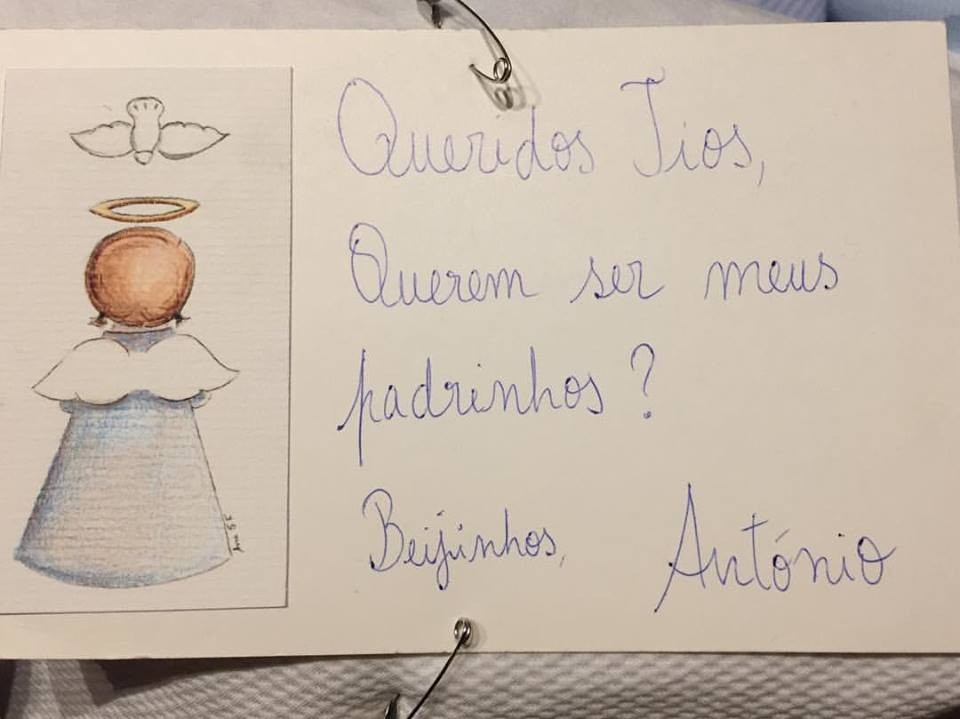 Queridos Tios,
Querem ser meus
padrinhos?
Beijinhos, António